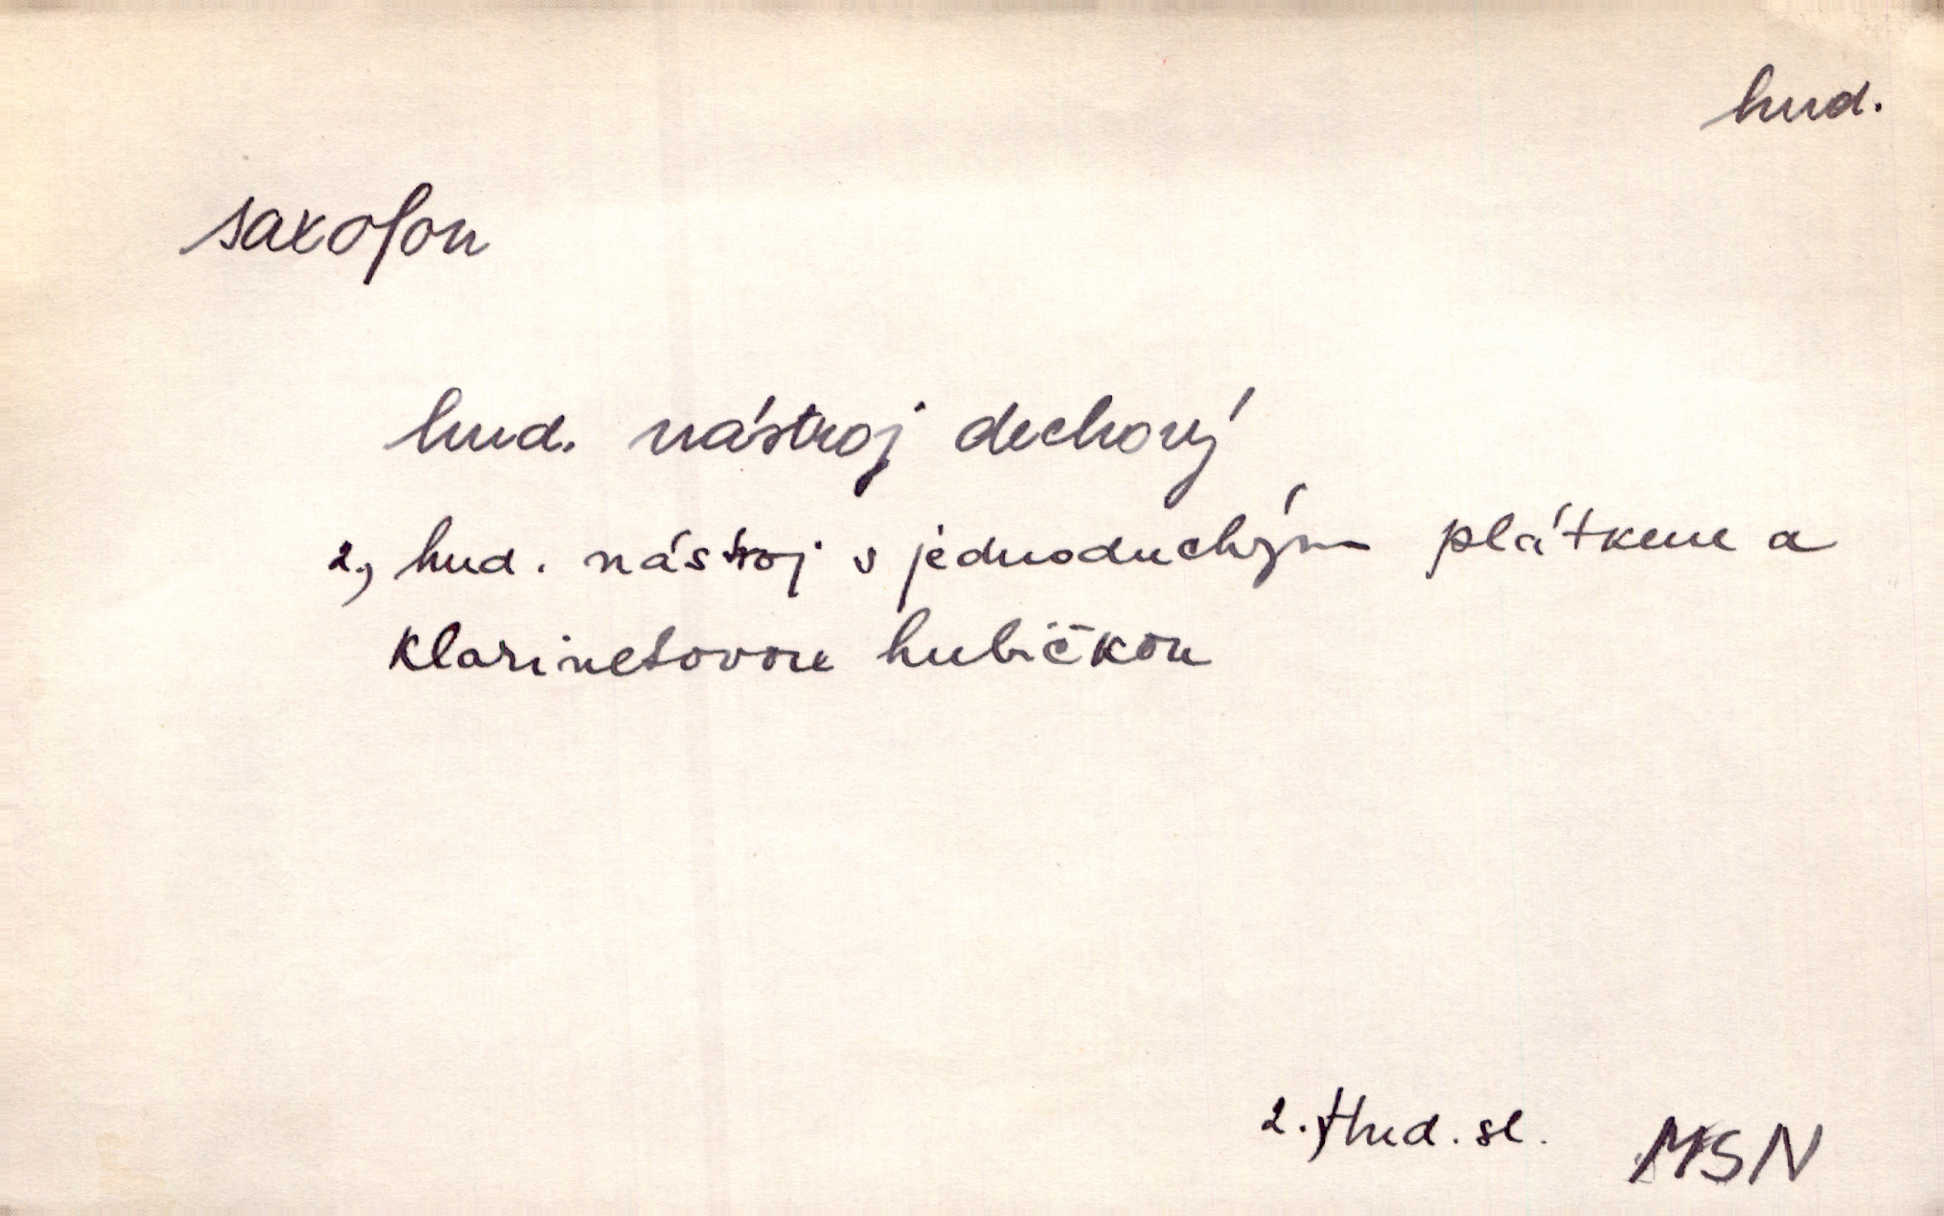 hud.
saxofon
hud. nástroj dechový
2, hud. nástroj s jednoduchým plátkem a
klarinetovou hubičkou
2. Hud. sl. MSN